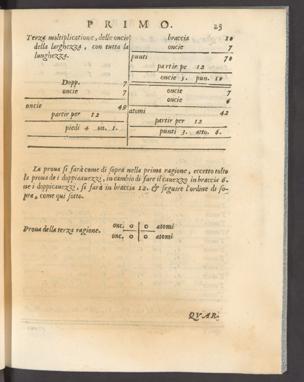 PRIMO. 25
Terza multiplicatione, delle oncie
della larghezza, con tutta la
lunghezza.
Dopp. 7
oncie 7
oncie 49
partir per 12
piedi 4 on. 1.
braccia 10
oncie 7
punti 70
partir pe 12
oncie 5. pun. 10
oncie 7
oncie 6
atomi 42
partir per 12
punti 3. atto. 6.
La proua si farà come di sopra nella prima ragione, eccetto tolto
la proua de i doppicauezzi, in cambio di fare il cauezzo in braccia 6.
ne i doppicauezzi, si farà in braccia 12. & seguire l'ordine di so-
pra, come qui sotto.
Proua della terza ragione.
onc. 0 0 atomi
onc. 0 0 atomi
QVAR-